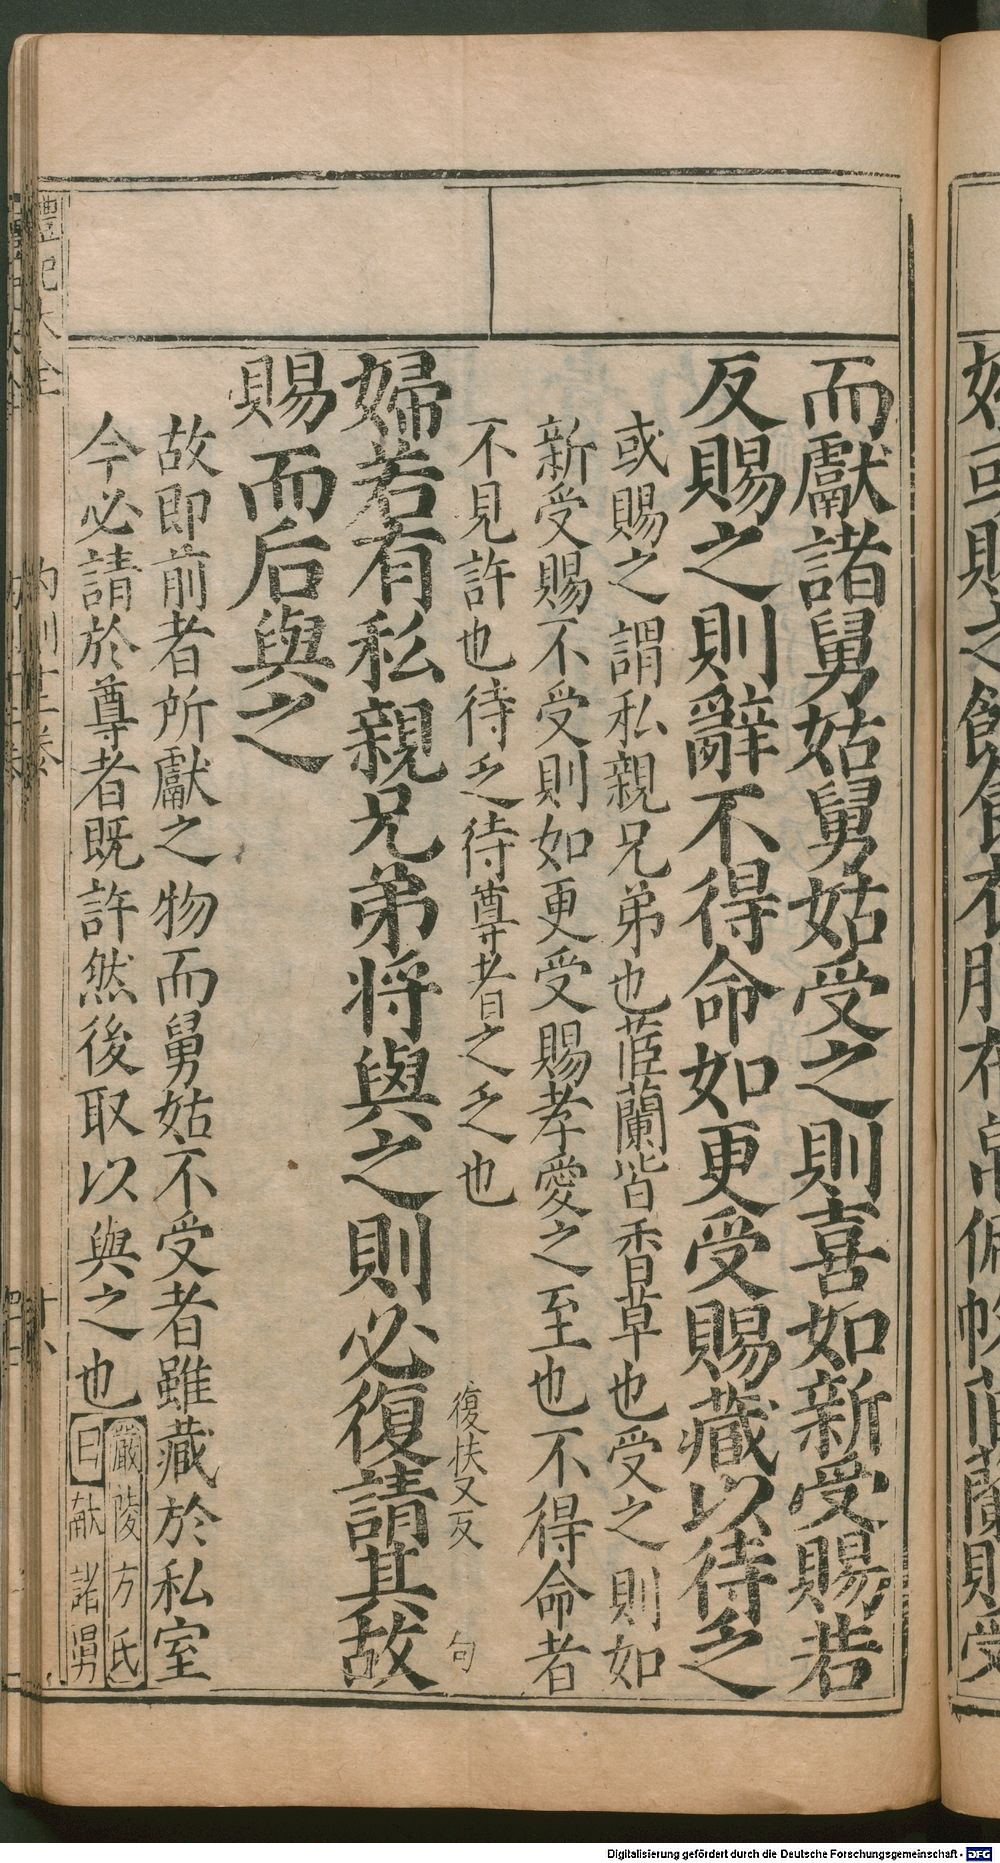 而獻諸舅姑舅姑受之則喜如新受賜若
反賜之則辭不得命如更受賜藏以待乏
或賜之謂私親兄弟也茝蘭皆香草也受之則如
新受賜不受則如更受賜孝愛之至也不得命者
不見許也待乏待尊者之乏也
復扶又反 句
婦若有私親兄弟將與之則必復請其故
賜而后與之
故即前者所獻之物而舅姑不受者雖藏於私室
今必請於尊者既許然後取以與之也
嚴陵方氏
曰献諸舅
禮記大全
Digitalisierung gefördert durch die Deutsche Forschungsgemeinschaft - DFG